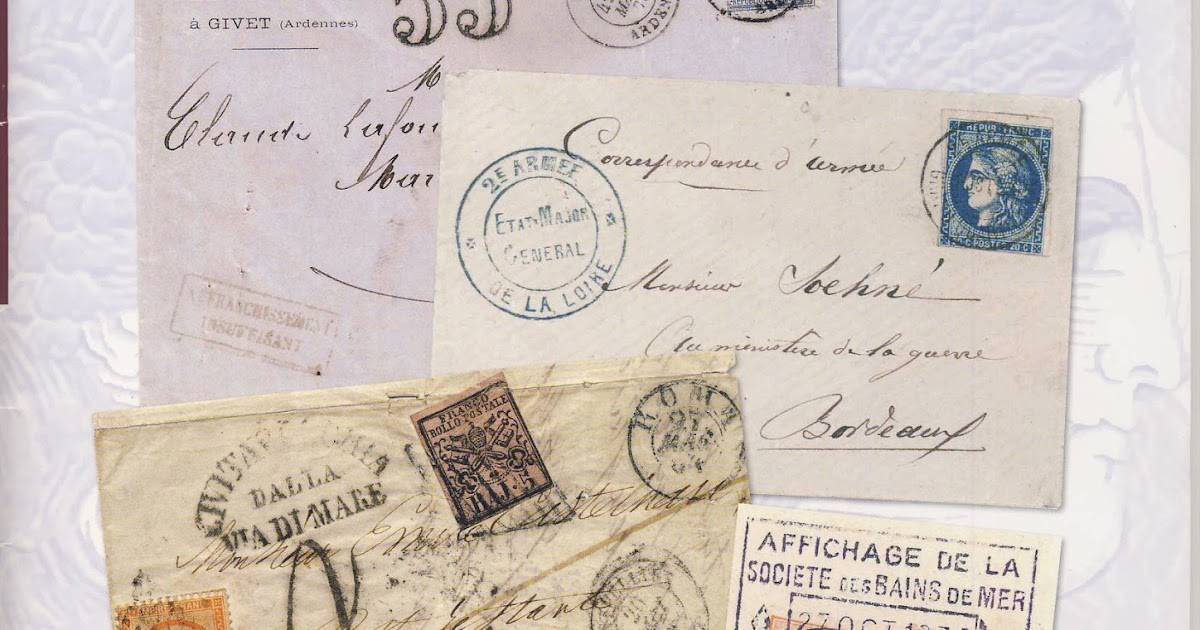 à GIVET (Ardennes)
55
ARDEN
M
Claude Lafon
Mar
AFFRANCHISSEMENT
INSUFFISANT
2E ARMÉE
ETAT-MAJOR
GENERAL
DE LA LOIRE
Correspondance d'armée
REPUB FRANC
20 C POSTES 20 C
Monsieur Soehné
Au ministère de la guerre
Bordeaux
FRANCO
BOLLO POSTALE
BAJ
ROMA
27
MAG
CIVITAVECCHIA
DALLA
VIA DI MARE
Monsieur
AFFICHAGE DE LA
SOCIETE DES BAINS DE MER
27 OCT